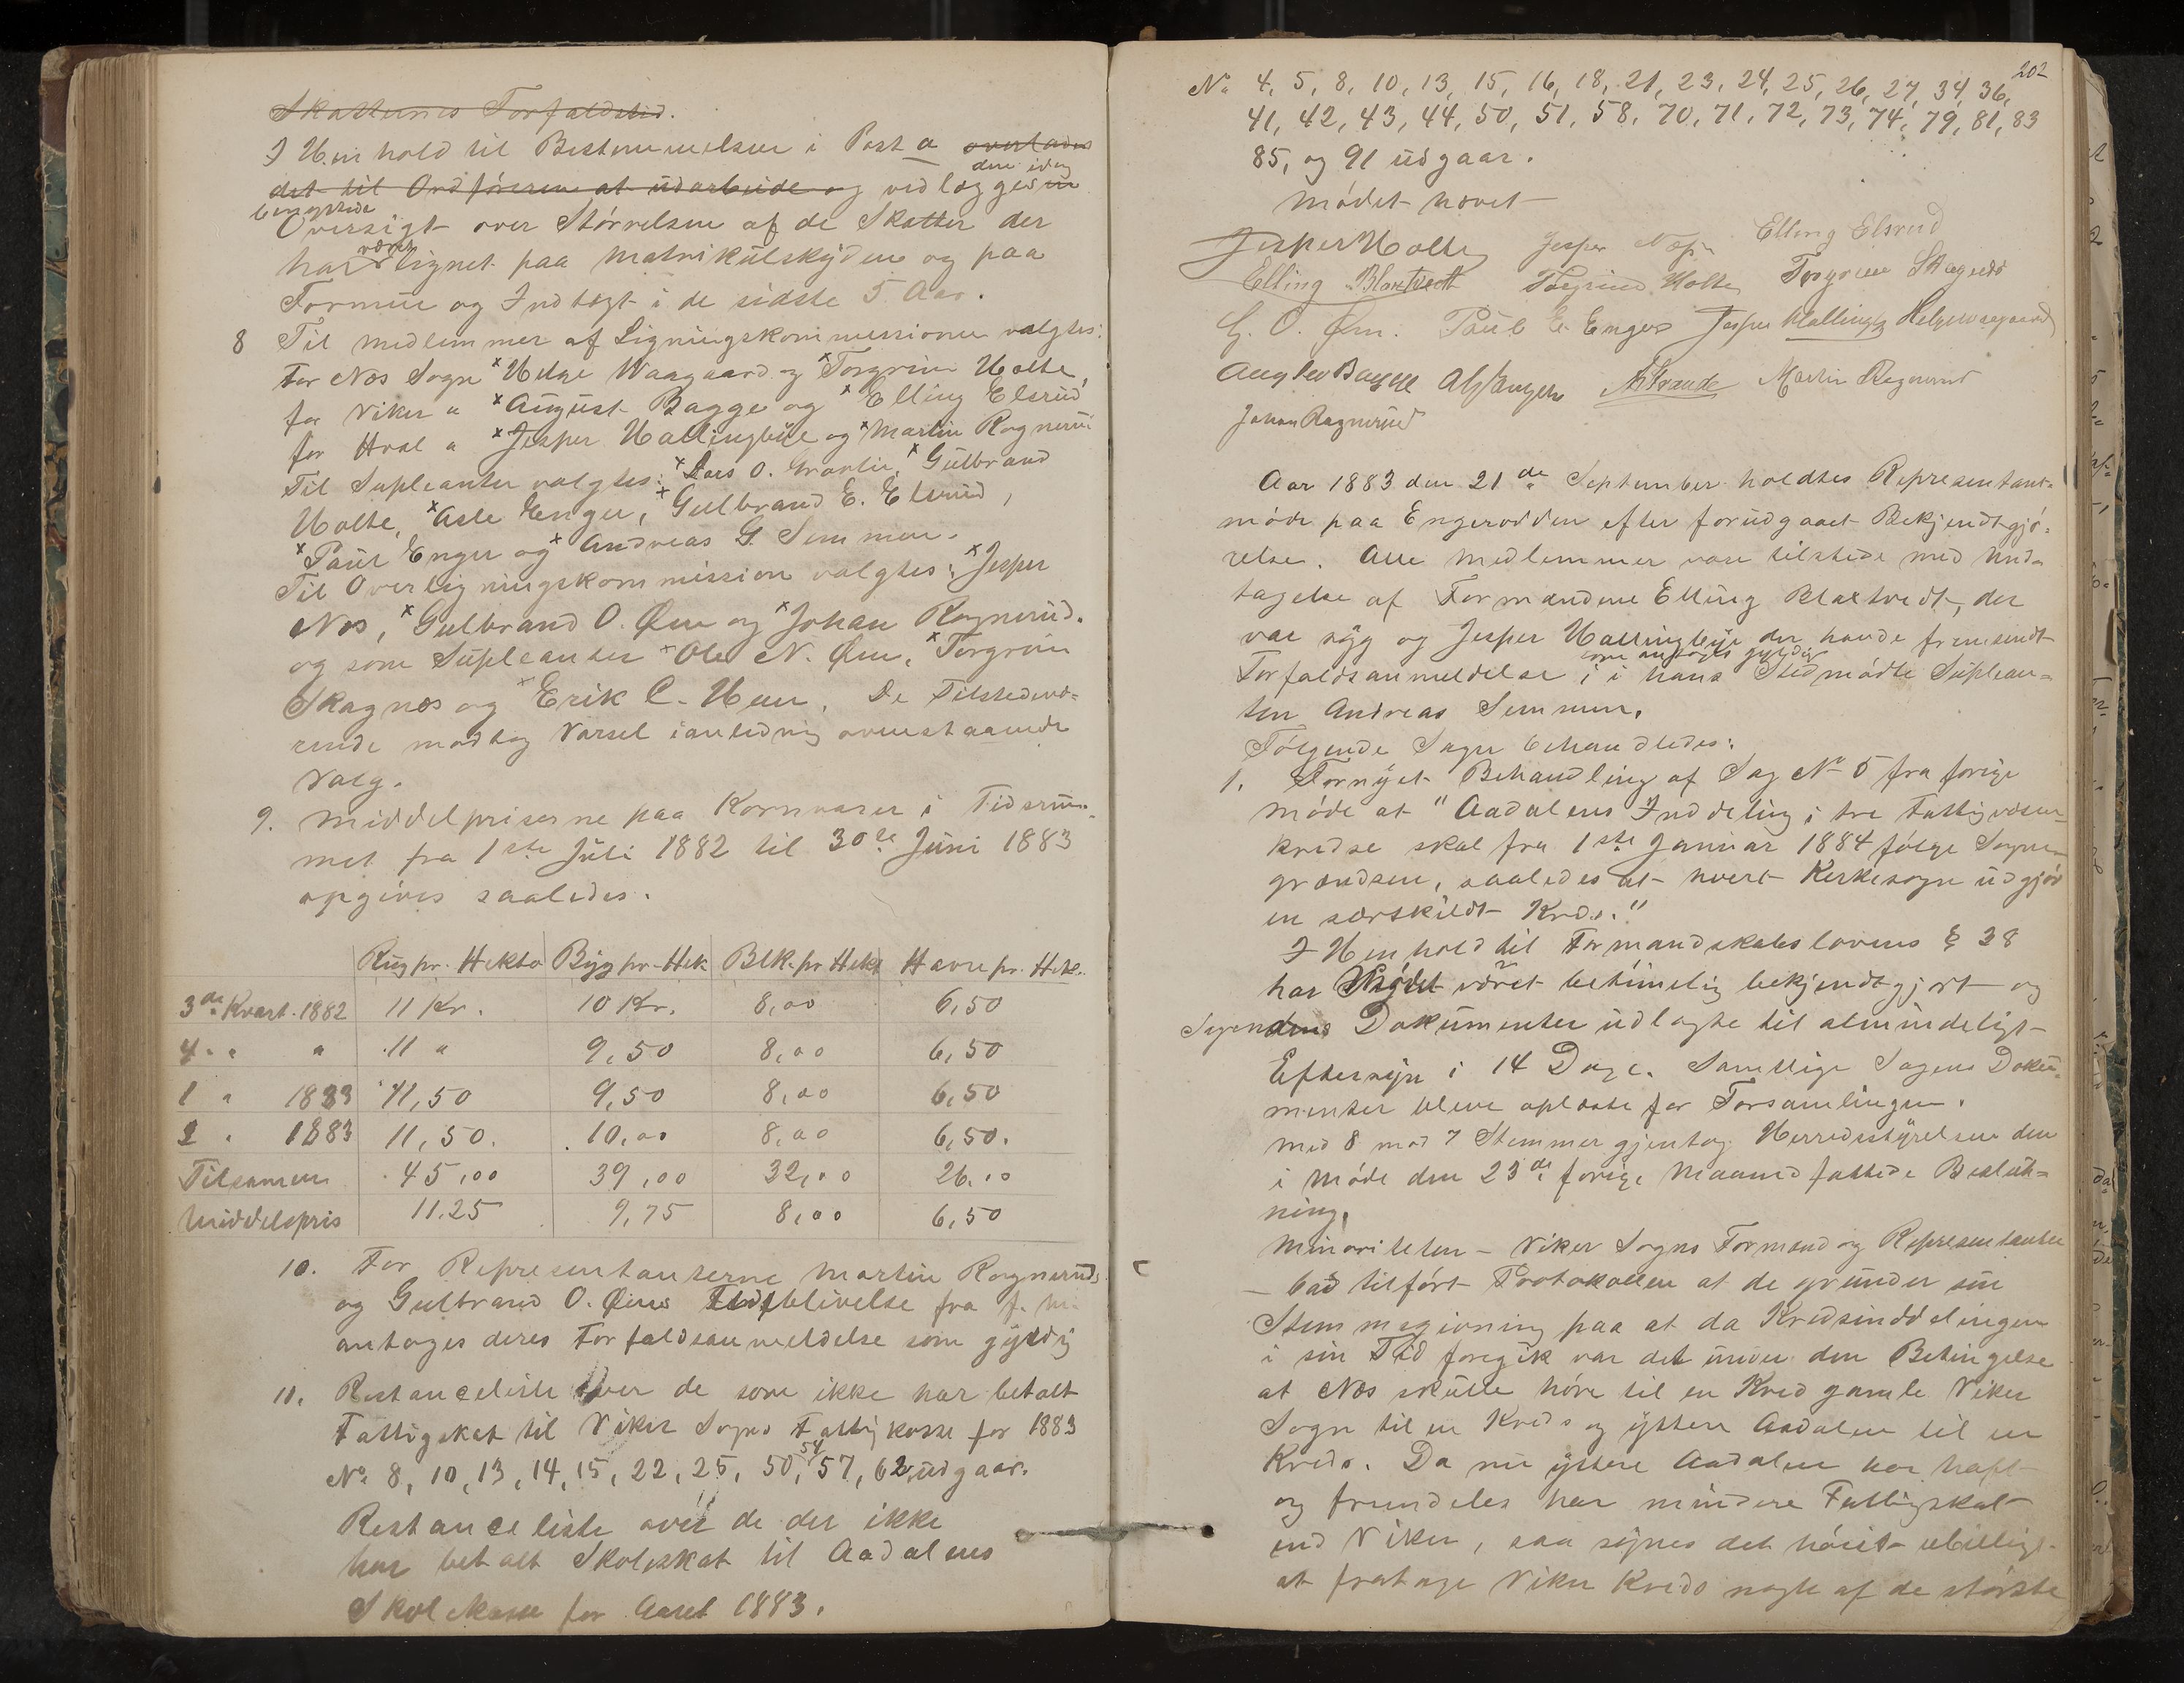 Skatternes Forfaldstid.
I Henhold til Bestemmelsen i Post a overlades
det til Ordføreren at udarbeide og vedlægges en
den idag
benyttede
Oversigt over Størrelsen af de Skatter der
har været lignet paa Matrikulskylden og paa
Formue og Indtægt i de sidste 5 Aar.
8 Til Medlemmer af Ligningskommissionen valgtes:
For Næs Sogn Helge Waagaard og Torgrim Holte,
for Viker " August Bagge og Elling Elsrud
for Hval " Jesper Hallingbye og Martin Ragnerud
Til Supleanter valgtes: Lars O. Granlie, Gulbrand
Holte, Asle Enger, Gulbrand E. Elsrud,
Paul Enger og Andreas G. Semmen.
Til Overligningskommission valgtes: Jesper
Næs, Gulbrand O. Øen og Johan Ragnerud.
og som Supleanter Ole N. Øen, Torgrim
Skagnæs og Erik C. Heen. De Tilstedevæ-
rende modtog Varsel i anledning ovenstaaende
Valg.
9. Middelpriserne paa Kornvarer i Tidsrum-
met fra 1ste Juli 1882 til 30te Juni 1883
opgives saaledes.
Rug pr. Hekto Byg pr. Hek. Blk. pr Hekt Havre pr. Hekt.
3die Kvart. 1882 11 Kr. 10 Kr. 8,00 6,50
4. " " 11 " 9,50 8,00 6,50
1 " 1883 11,50 9,50 8,00 6,50
2 " 1883 11,50. 10,00 8,00 6,50.
Tilsamen 45,00 39,00 32,00 26.00
Middelspris 11.25 9,75 8,00 6,50
10. For Representanterne Martin Ragneruds
og Gulbrand O. Øens Udeblivelse fra f. M.
antoges deres Forfaldsanmeldelse som gyldig
11. Restanceliste over de som ikke har betalt
Fattigskat til Viker Sogns Fattigkasse for 1883
No 8, 10, 13, 14, 15, 22, 25, 50, 54, 57, 62, udgaar.
Restanceliste over de der ikke
har betalt Skoleskat til Aadalens
Skolekasse for Aaret 1883.
202
No 4, 5, 8, 10, 13, 15, 16, 18, 21, 23, 24, 25, 26, 27, 34, 36,
41, 42, 43, 44, 50, 51, 58, 70, 71, 72, 73, 74, 79, 81, 83
85, og 91 udgaar.
Mødet hævet
Jesper Holte Jesper Næs Elling Elsrud
Elling Blaktvedt Torgrim Holte Torgrim Skagnæs
G. O. Øen. Paul E. Enger Jesper Hallingby Helge Waagaard
Aug. Bagge Martin Ragnerud
Johan Ragnerud
Aar 1883 den 21de September holdtes Representant-
møde paa Engerodden efter forudgaaet Bekjendtgjø-
relse. Alle Medlemmer vare tilstede med Und-
tagelse af Formændene Elling Blaktvedt, der
var syg og Jesper Hallingbye der havde fremsendt
Forfaldsanmeldelse, som ansaaes gyldig i hans Sted mødte Suplean-
ten Andreas Semmen.
Følgende Sager behandledes:
1. Fornyet Behandling af Sag No 5 fra forige
Møde at "Aadalens Inddeling i tre Fattigvæsen-
kredse skal fra 1ste Januar 1884 følge Sogne-
grændsen, saaledes at hvert Kirkesogn udgjør
en særskildt Kreds."
I Henhold til Formandskabslovens § 28
har Mødet været betimelig bekjendtgjort og
Sagens Dokumenter udlagte til almindeligt
Eftersyn i 14 Dage. Samtlige Sagens Doku-
menter bleve oplæste for Forsamlingen.
Med 8 mod 7 Stemmer gjentog Herredsstyrelsen den
i Møde den 23de forige Maaned fattede Beslut-
ning.
Minoriteten – Viker Sogns Formænd og Representanter
– bad tilført Protokollen at de grunder sin
Stemmegivning paa at da Kredsinddelingen
i sin Tid foregik var det under den Betingelse
at Næs skulle høre til en Kreds gamle Viker
Sogn til en Kreds og yttere Aadalen til en
Kreds. Da nu yttere Aadalen har havt
og fremdeles har mindre Fattigskat
end Viker, saa synes det høist ubilligt
at fratage Viker Kreds nogle af de største